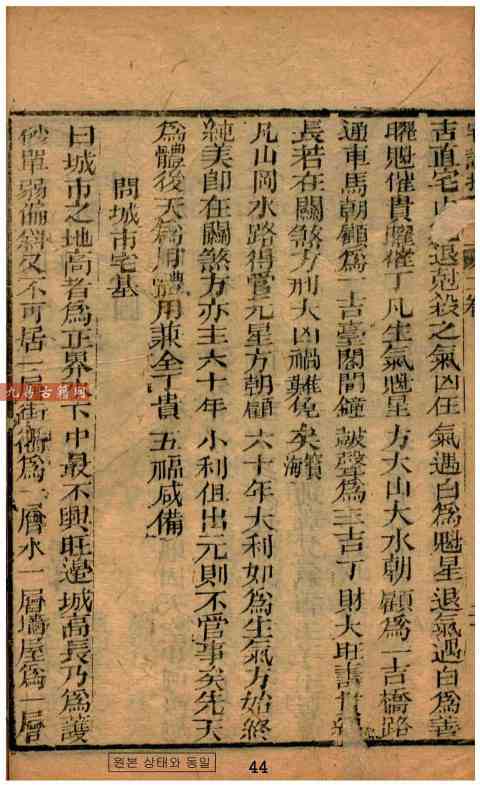 吉直宅 退尅殺之氣凶在氣遇白為魁星退氣遇白為善
曜魁催貴曜催丁凡生氣魁星方大山大水朝顧為一吉橋路
通車馬朝顧為一吉臺閣門鐘皷聲為主吉丁財大旺壽
長若在關煞方刑大凶禍難免矣寶海
凡山岡水路得管元星方朝顧六十年大利如為生氣方始終
純美即在關煞方亦主六十年小利但出元則不管事矣先天
為體後天為用體用兼全丁貴五福咸備
問城市宅基
曰城市之地高者為正界 下中最不興旺邊城高長乃為護
砂單弱偏斜又不可居一層街衢為一層水一層墻屋為一層
九易古籍網
원본 상태와 동일
44